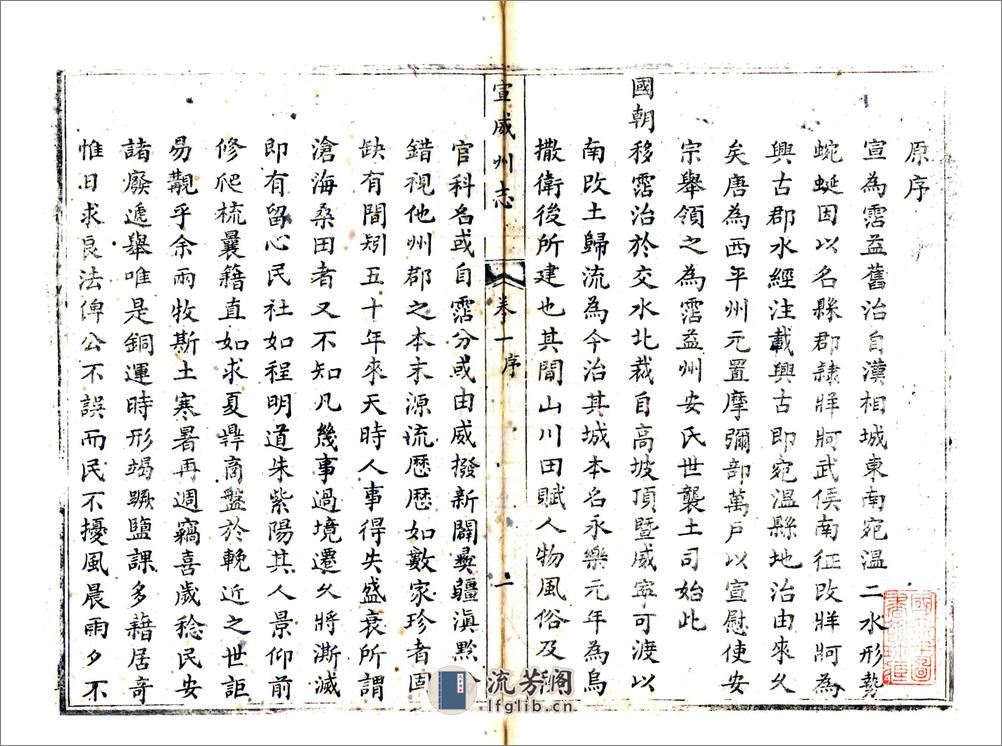 原序
宣為霑益舊治自漢相城東南宛溫二水形勢
蜿蜒因以名縣郡隸牂牁武侯南征改牂牁為
興古郡水經注載興古即宛溫縣地治由來久
矣唐為西平州元置摩彌部萬戶以宣慰使安
宗舉領之為霑益州安氏世襲土司始此
國朝移霑治於交水北裁自高坡頂暨威寧可渡以
南改土歸流為今治其城本名永樂元年為烏
撒衛後所建也其間山川田賦人物風俗及
宣威州志
卷一
序
二
官科名或自霑分或由威撥新闢彞疆滇黔
錯視他州郡之本末源流歷歷如數家珍者固
缺有間矧五十年來天時人事得失盛衰所謂
滄海桑田者又不知凡幾事過境遷久將澌滅
即有留心民社如程明道朱紫陽其人景仰前
修爬梳曩籍直如求夏鼎商盤於輓近之世詎
易覯乎余雨牧斯土寒暑再週竊喜歲稔民安
諸廢遞舉唯是銅運時形竭蹶鹽課多藉居奇
惟日求良法俾公不誤而民不擾風晨雨夕不
流芳閣
lfglib.cn